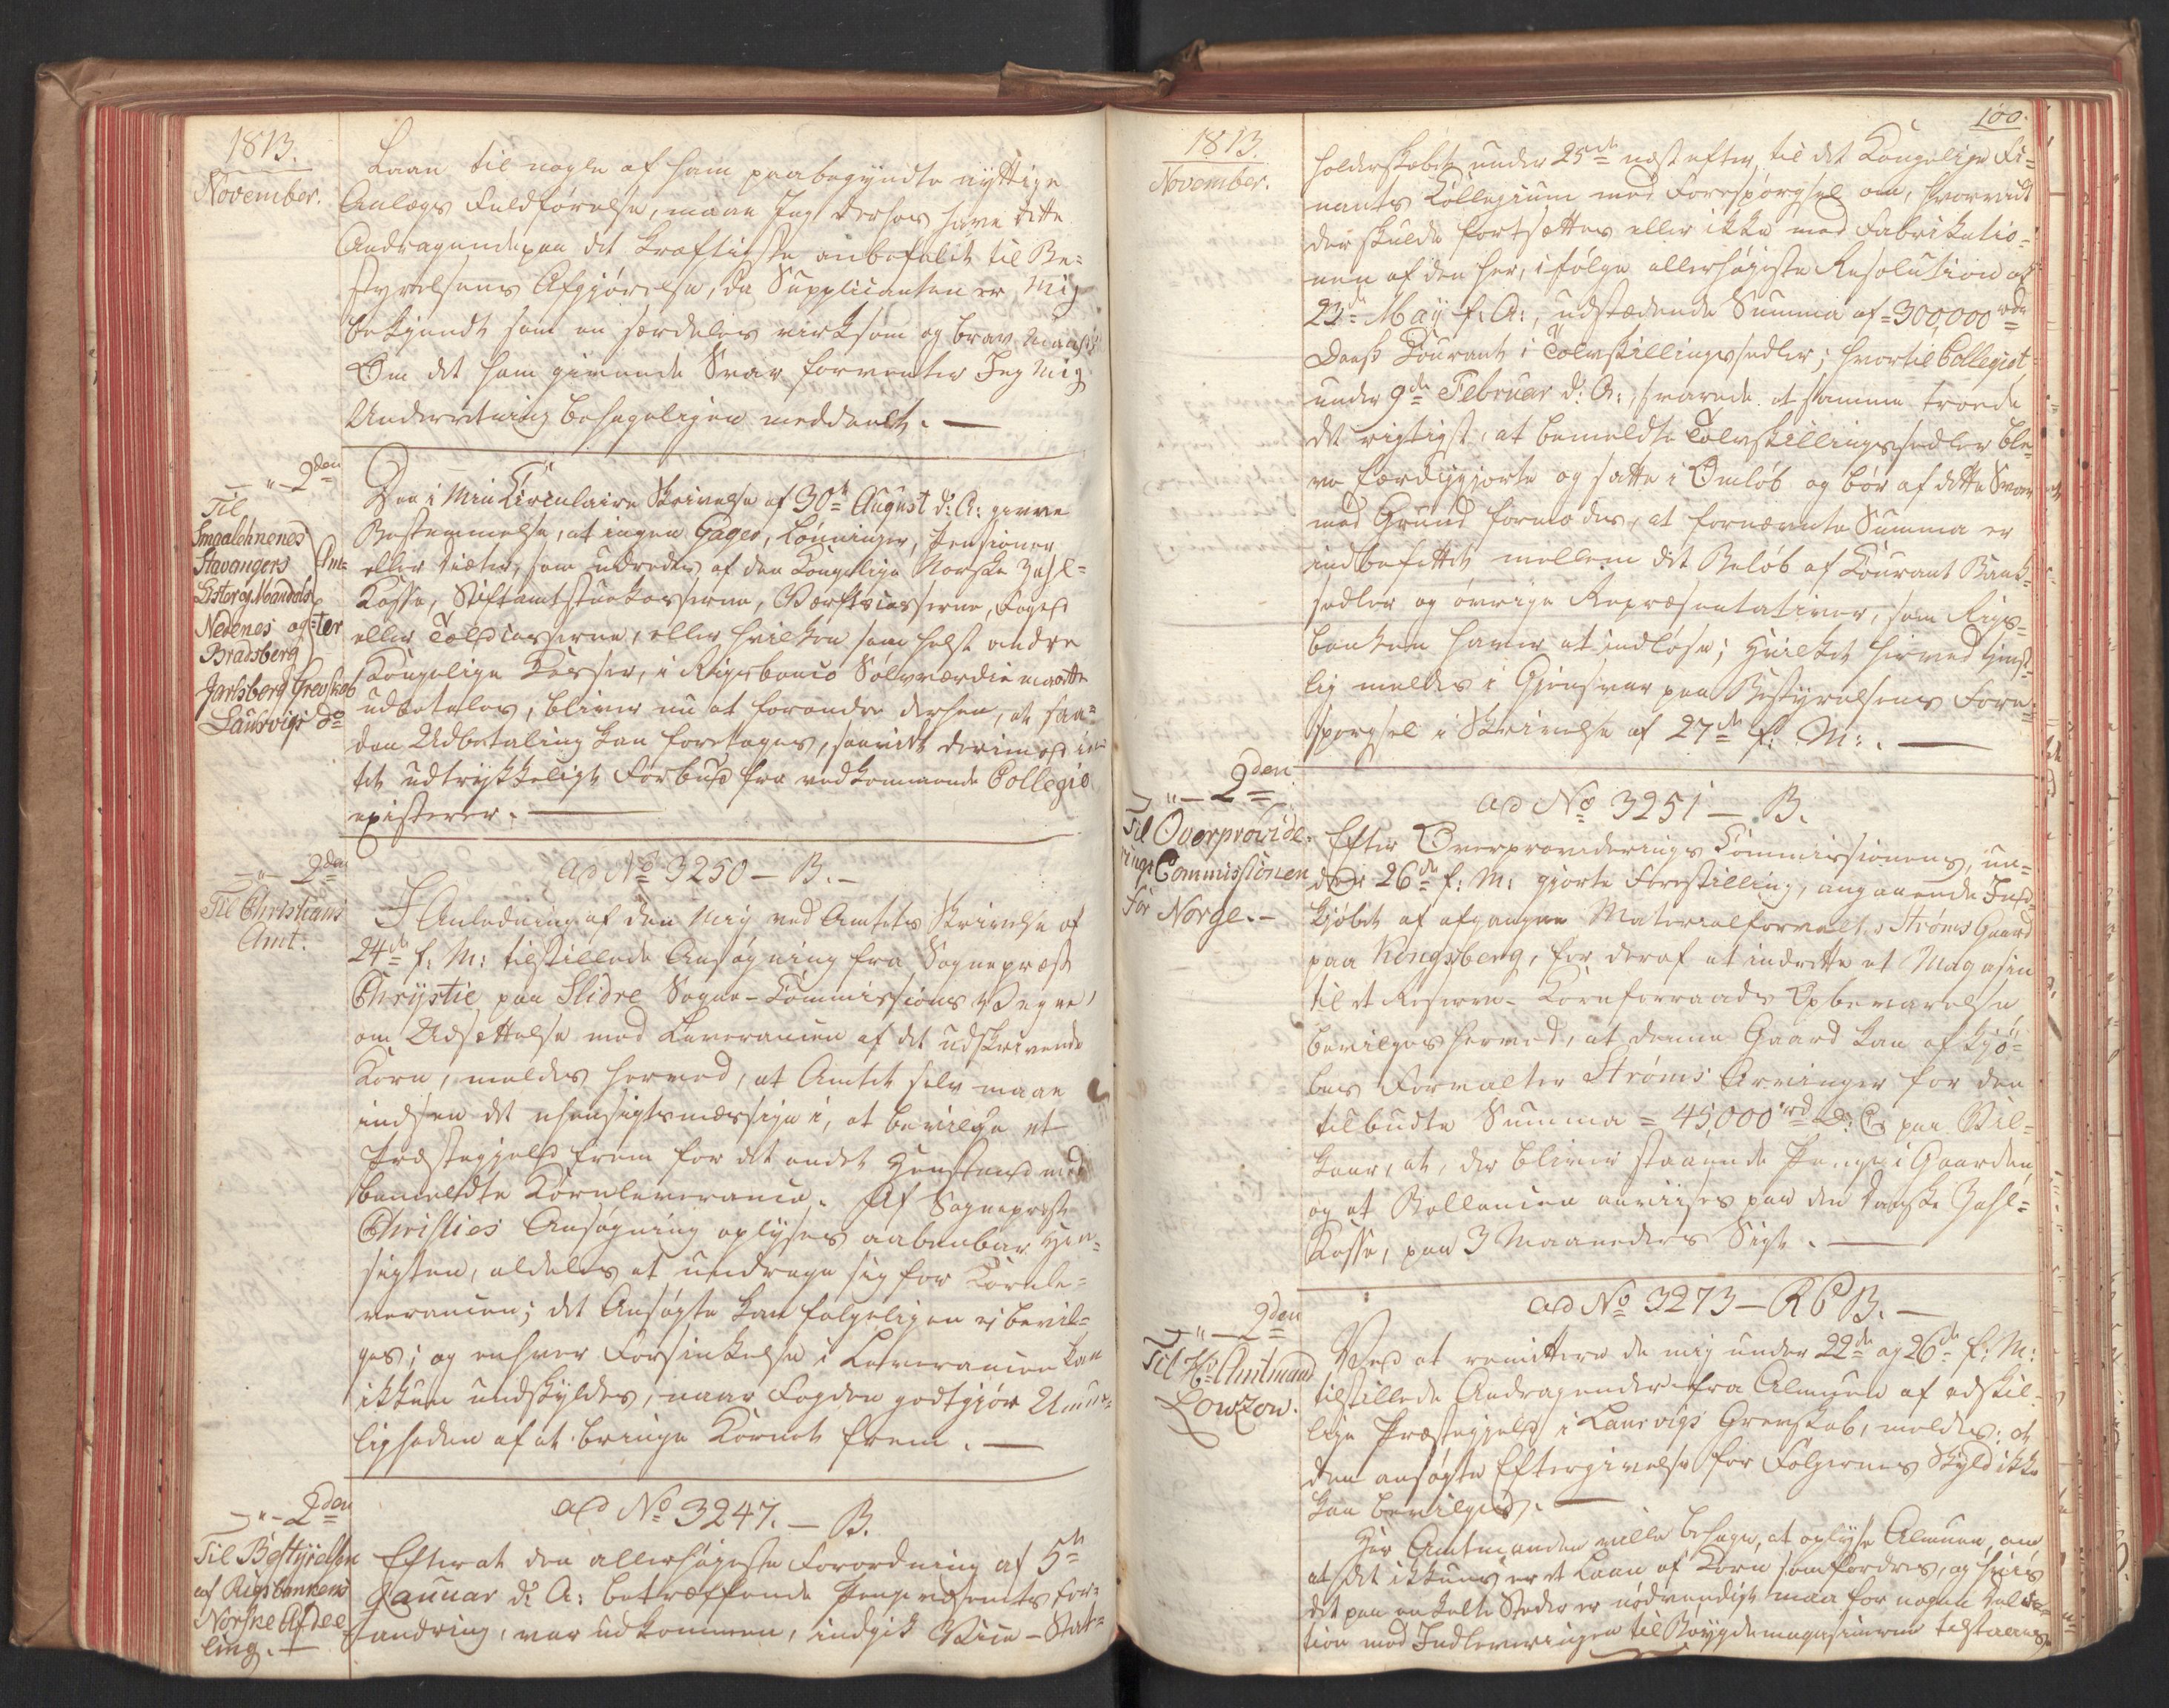 1813.
November.
Laan til nogle af ham paabegyndte nyttige
Anlægs Fuldførelse, maae Jeg derhos have dette
Andragende paa det kraftigste anbefalet til Be-
styrelsens Afgjørelse, da Supplicanten er mig
bekjendt som en særdeles virksom og brav Mand
Om det ham givende Svar forventer Jeg mig
Underretning behageligen meddeelt. —
— " — 2den
Til
Smaalehnenes
Stavangers
Lister og Mandals
Nedenes og
Bradsberg
Amter
Jarlsberg Grevskab
Laurvigs do
Den i Min Circulaire Skrivelse af 30te August d: A: givne
Bestemmelse, at ingen Gager, Lønninger, Pensioner
eller Diæter, som udredes af den Kongelige Norske Zahl-
Kasse, Stiftamtstuekasserne, Værftscasserne, Foged
eller Toldcasserne, eller hvilken som helst andre
Kongelige Kasser, i Rigsbanco Sølvværdie maatte
udbetales, bliver nu at forandre derhen, at saa-
dan Udbetaling kan foretages, saavidt derimod in-
tet udtrykkeligt Forbud fra vedkommende Collegio
existerer. —
— " — 2den
Til Christians
Amt.
ad No 3250 — B. —
I Anledning af den mig ved Amtets Skrivelse af
24de f: M: tilstillede Ansøgning fra Sognepræst
Chrystie paa Slidre Sogne-Commissions Vegne,
om Udsættelse med Leverancen af det udskrevende
Korn, meldes herved, at Amtet selv maae
indsee det uhensigtsmæssige i, at bevilge et
Præstegjeld frem for det andet Henstand med
bemeldte Kornleverance. Af Sognepræst
Christies Ansøgning oplyses aabenbar Hen-
sigten, aldeles at unddrage sig for Kornle-
verancen; det Ansøgte kan følgeligen ei bevil-
ges; og enhver Forsinkelse i Leverancen kan
ikkun undskyldes, naar Fogden godtgjør Umue-
ligheden af at bringe Kornet frem. —
— " — 2den
Til Bestyrelsen
af Rigsbankens
Norske Afdee-
ling. —
ad No 3247. — B.
Efterat den allerhøieste Forordning af 5te
Januar d: A: betræffende Pengevæsenets For-
andring, var udkommen, indgik Vice-Stat-
100.
1813.
November.
holderskabet under 25de næstefter, til det Kongelige Fi-
nants Collegium med Forespørgsel om, hvorvidt
der skulde fortsættes eller ikke med Fabrikatio-
nen af den her, ifølge allerhøieste Resolution af
23de May f: A:, udstædende Summa af = 300,000 rdr
Dansk Courant i Tolvskillingssedler; hvortil Collegiet
under 9de Februar d: A:, svarede at samme troede
det rigtigst, at bemeldte Tolvskillingssedler ble-
ve færdiggjorte og satte i Omløb og bør af dette Svar
med Grund formodes, at fornævnte Summa er
indbefattet mellem det Beløb af Courant Bank-
sedler og øvrige Repræsentativer, som Rigs-
banken haver at indløse; Hvilket herved tienst-
lig meldes i Giensvar paa Bestyrelsens Fore-
spørgsel i Skrivelse af 27de f: M:. —
— " — 2den
Til Overprovide-
rings Commissionen
for Norge. —
ad No 3251 — B.
Efter Overproviderings Commissionens, un-
der 26de f: M: gjorte Forestilling, angaaende Ind-
kjøbet af afgangne Materialforvalter Strøms Gaard
paa Kongsberg, for deraf at indrette et Magasin
til et Reserve-Kornforraads Opbevarelse,
bevilges herved, at denne Gaard kan afkjø-
bes Forvalter Strøms Arvinger for den
tilbudte Summa = 45,000 rd D: C: paa Vil-
kaar, at, der bliver staaende Penge i Gaarden,
og at Ballancen anviises paa den danske Zahl-
Kasse, paa 3 Maaneders Sigt. —
— " — 2den
Til Hr Amtmand
Lowzow.
ad No 3273 — R P B. —
Ved at remittere de mig under 22de og 26de f: M:
tilstillede Andragender fra Almuen af adskil-
lige Præstegjeld i Laurvigs Grevskab, meldes: at
den ansøgte Eftergivelse for Følgernes Skyld ikke
kan bevilges. —
Hr Amtmanden ville behage, at oplyse Almuen om
at det ikkuns er et Laan af Korn som fordres, og hvis
det paa enkelte Steder er nødvendigt maa for nogen
tion med Indleveringen til Bøygdemagasinerne tilstaaes